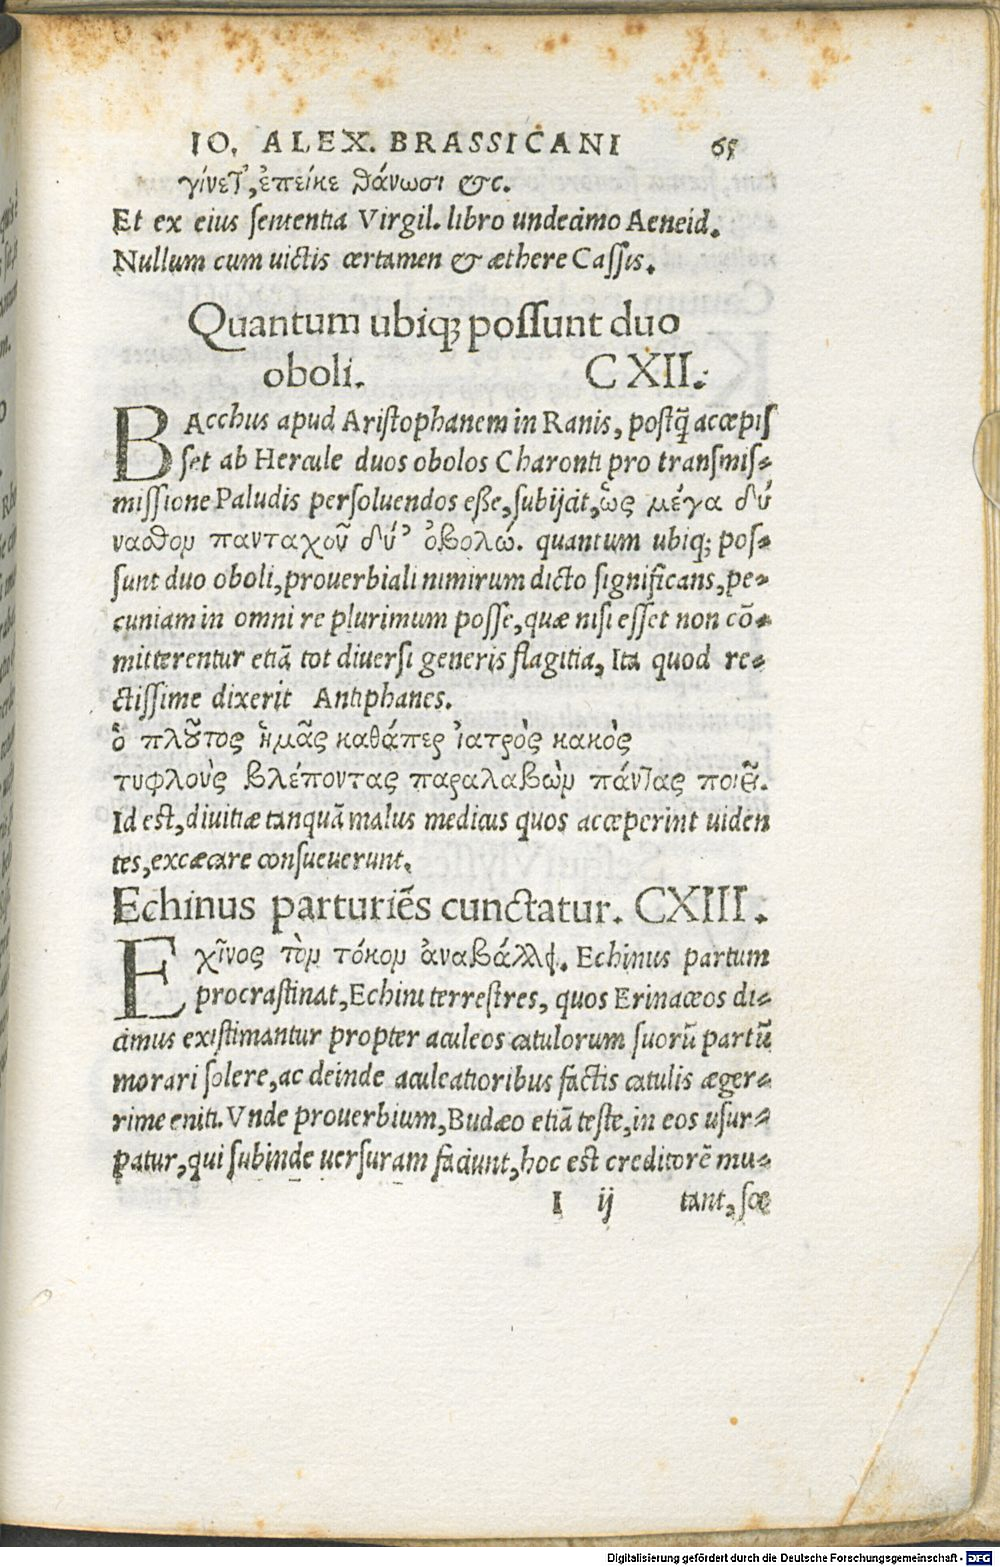 IO. ALEX. BRASSICANI 65
γίνετ', ἐπείκε θάνωσι &c.
Et ex eius sententia Virgil. libro undecimo Aeneid.
Nullum cum uictis certamen & æthere Cassis.
Quantum ubiq; possunt duo
oboli. CXII.
BAcchus apud Aristophanem in Ranis, postq̄ accepiſ
set ab Hercule duos obolos Charonti pro transmis-
missione Paludis persoluendos eße, subijcit, ὡς μέγα δύ
ναϑον πανταχοῦ δύ' ὀβολώ. quantum ubiq; pos-
sunt duo oboli, prouerbiali nimirum dicto significans, pe-
cuniam in omni re plurimum posse, quæ nisi esset non cō-
mitterentur etiā tot diuersi generis flagitia, Ita quod re-
ctissime dixerit Antiphanes.
ὁ πλοῦτος ἡμᾶς καθάπερ ἰατρὸς κακὸς
τυφλοὺς βλέποντας παραλαβὼν πάντας ποιεῖ.
Id est, diuitiæ tanquā malus medicus quos acceperint uiden
tes, excæcare consueuerunt.
Echinus parturiēs cunctatur. CXIII.
Eχῖνος τὸν τόκον ἀναβάλλῃ. Echinus partum
procrastinat, Echini terrestres, quos Erinaceos di-
cimus existimantur propter aculeos catulorum suorū partū
morari solere, ac deinde aculeatioribus factis catulis æger-
rime eniti. Vnde prouerbium, Budæo etiā teste, in eos usur-
patur, qui subinde uersuram faciunt, hoc est creditorē mu-
I ij tant, sœ
Digitalisierung gefördert durch die Deutsche Forschungsgemeinschaft - DFG